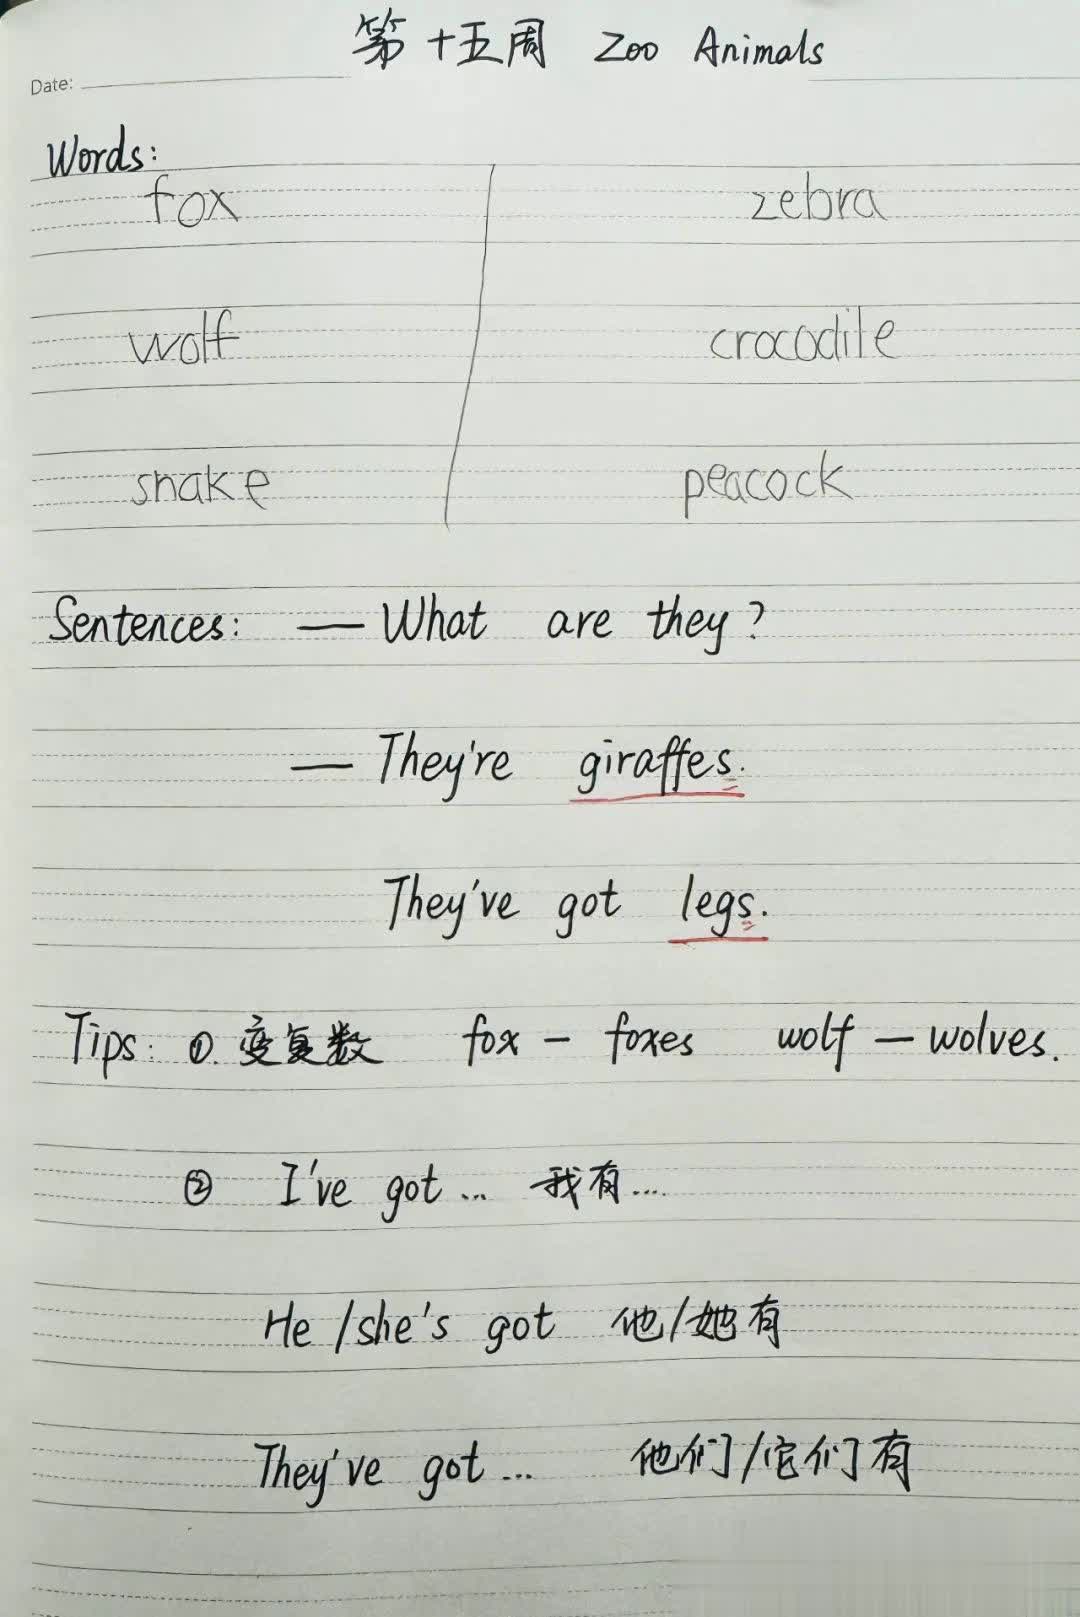 第十五周 Zoo Animals
Date:
Words:
fox zebra
wolf crocodile
snake peacock
Sentences: — What are they?
— They're giraffes.
They've got legs.
Tips: ①. 变复数 fox – foxes wolf — wolves.
② I've got ... 我有....
He/she's got 他/她有
They've got ... 他们/它们有